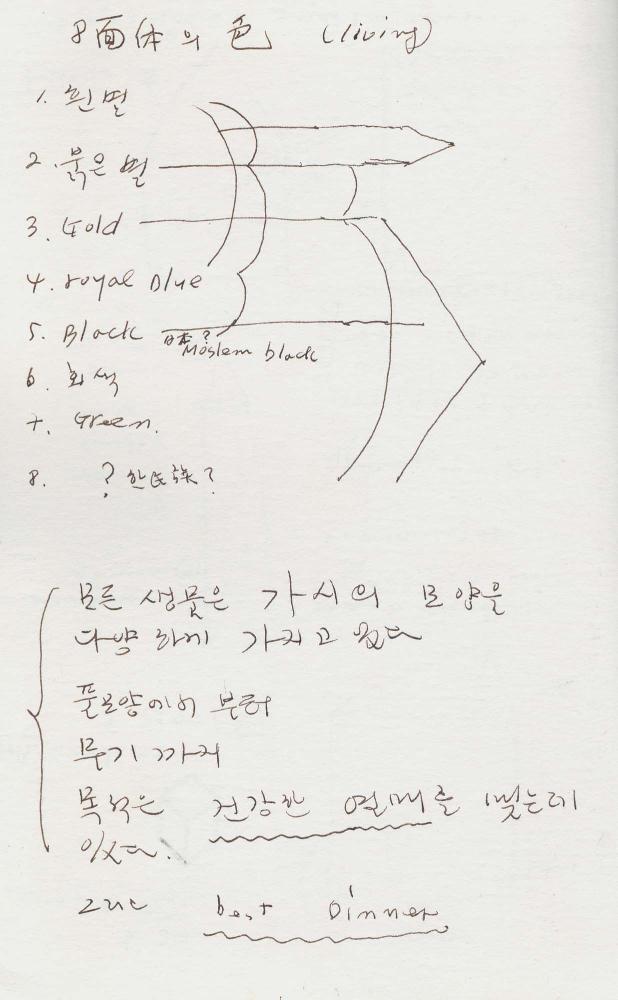 8面体의 色 (living)
1. 흰별
2. 붉은 별
3. Gold
4. royal Blue
5. Black 日本?
Moslem black
6. 회색
7. Green.
8. ? 한民族?
모든 생물은 가시의 모양을
다양하게 가지고 있다
풀모양에서 부터
무기 까지
목적은 건강한 열매를 맺는데
있다.
그리고 best Dinner